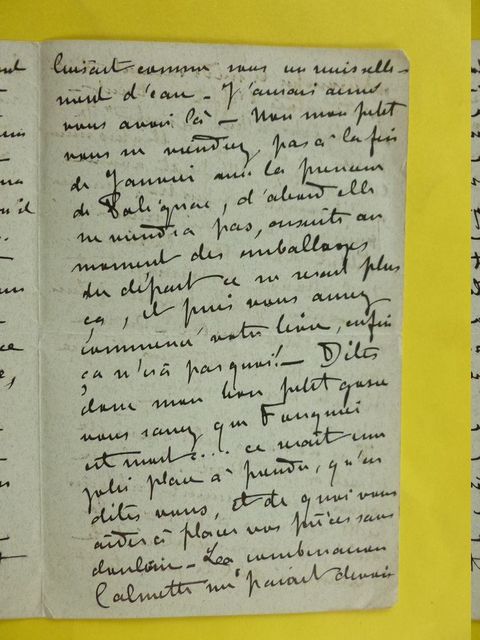 luisant comme sous un ruisselle-
ment d'eau - J'aurais aimé
vous avoir là - Non mon petit
vous ne viendrez pas à la fin
de Janvier avec la
de Polignac, d'abord elle
ne viendra pas, ensuite au
moment des emballages
du départ ce ne serait plus
ça, et puis vous aurez
commencé votre livre, enfin
ça n'ira pas quoi! - Dites
donc mon bon petit gosse
vous savez que Fouquier
est mort .... ce serait une
jolie place à prendre, qu'en
dites vous, et de quoi vous
aider à placer vos pièces sans
douleur - La combinaison
Calmette m' paraît devoir